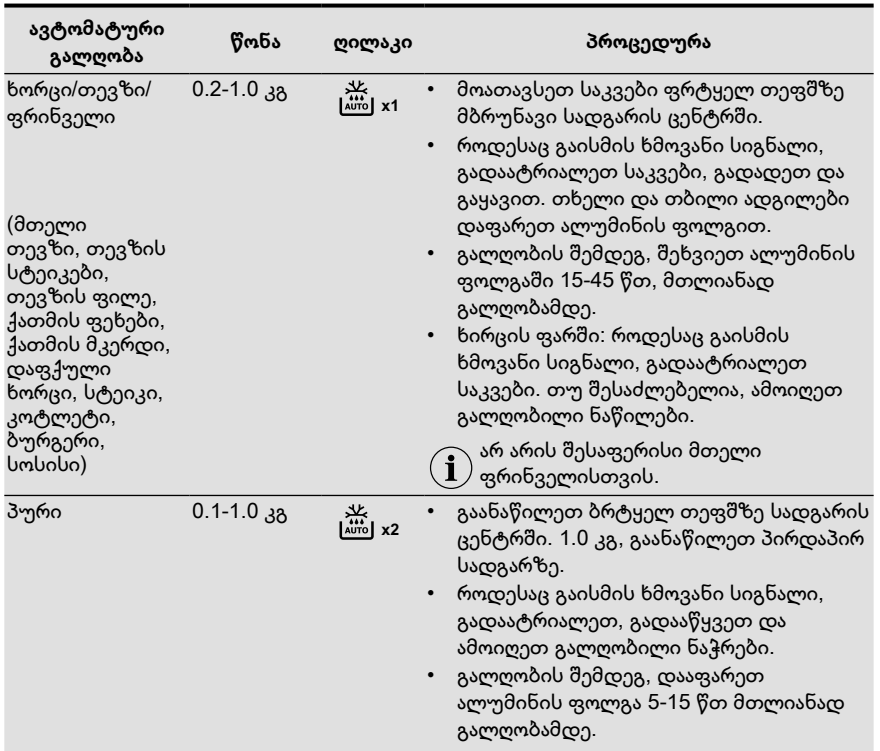 ავტომატური
გალღობა
წონა
ღილაკი
პროცედურა
ხორცი/თევზი/
ფრინველი
(მთელი
თევზი, თევზის
სტეიკები,
თევზის ფილე,
ქათმის ფეხები,
ქათმის მკერდი,
დაფქული
ხორცი, სტეიკი,
კოტლეტი,
ბურგერი,
სოსისი)
0.2-1.0 კგ
AUTO x1
• მოათავსეთ საკვები ფრტყელ თეფშზე
მბრუნავი სადგარის ცენტრში.
• როდესაც გაისმის ხმოვანი სიგნალი,
გადაატრიალეთ საკვები, გადადეთ და
გაყავით. თხელი და თბილი ადგილები
დაფარეთ ალუმინის ფოლგით.
• გალღობის შემდეგ, შეხვიეთ ალუმინის
ფოლგაში 15-45 წთ, მთლიანად
გალღობამდე.
• ხირცის ფარში: როდესაც გაისმის
ხმოვანი სიგნალი, გადაატრიალეთ
საკვები. თუ შესაძლებელია, ამოიღეთ
გალღობილი ნაწილები.
i არ არის შესაფერისი მთელი
ფრინველისთვის.
პური
0.1-1.0 კგ
AUTO x2
• გაანაწილეთ ბრტყელ თეფშზე სადგარის
ცენტრში. 1.0 კგ, გაანაწილეთ პირდაპირ
სადგარზე.
• როდესაც გაისმის ხმოვანი სიგნალი,
გადაატრიალეთ, გადააწყვეთ და
ამოიღეთ გალღობილი ნაჭრები.
• გალღობის შემდეგ, დააფარეთ
ალუმინის ფოლგა 5-15 წთ მთლიანად
გალღობამდე.